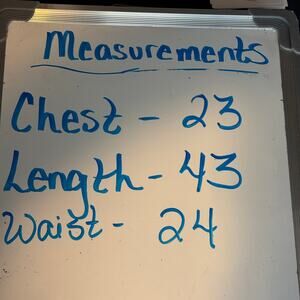 Measurements
Chest - 23
Length - 43
Waist - 24